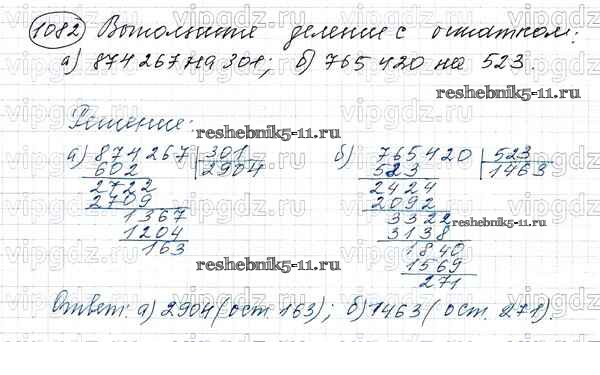 1082 Выполните деление с остатком:
а) 874 267 на 301; б) 765 420 на 523.
Решение:
а) 874267 | 301
602 2904
2722
2709
1367
1204
163
б) 765420 | 523
523 1463
2424
2092
3322
3138
1840
1569
271
Ответ: а) 2904 (ост. 163); б) 1463 (ост. 271).
vipgdz
reshebnik5-11.ru
reshebnik5-11.ru
reshebnik5-11.ru
reshebnik5-11.ru